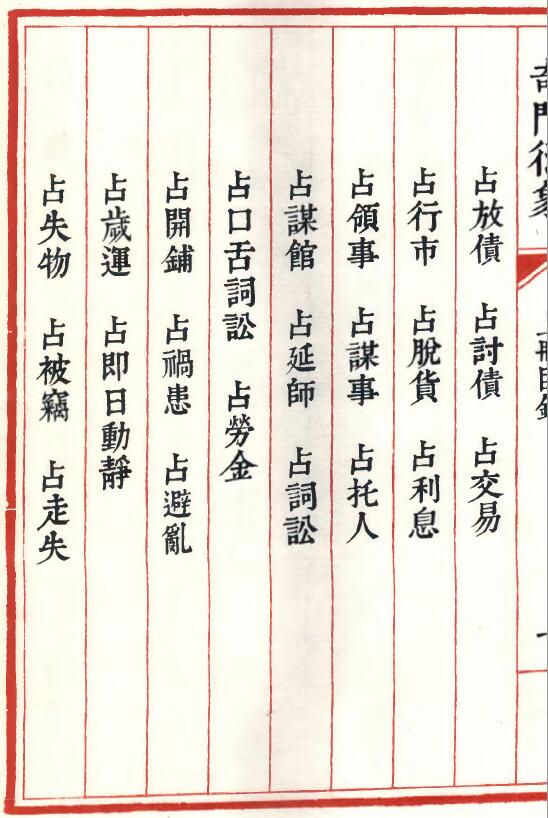 奇門衍象
冊目錄
占放債 占討債 占交易
占行市 占脫貨 占利息
占領事 占謀事 占托人
占謀館 占延師 占詞訟
占口舌詞訟 占勞金
占開鋪 占禍患 占避亂
占歲運 占即日動靜
占失物 占被竊 占走失